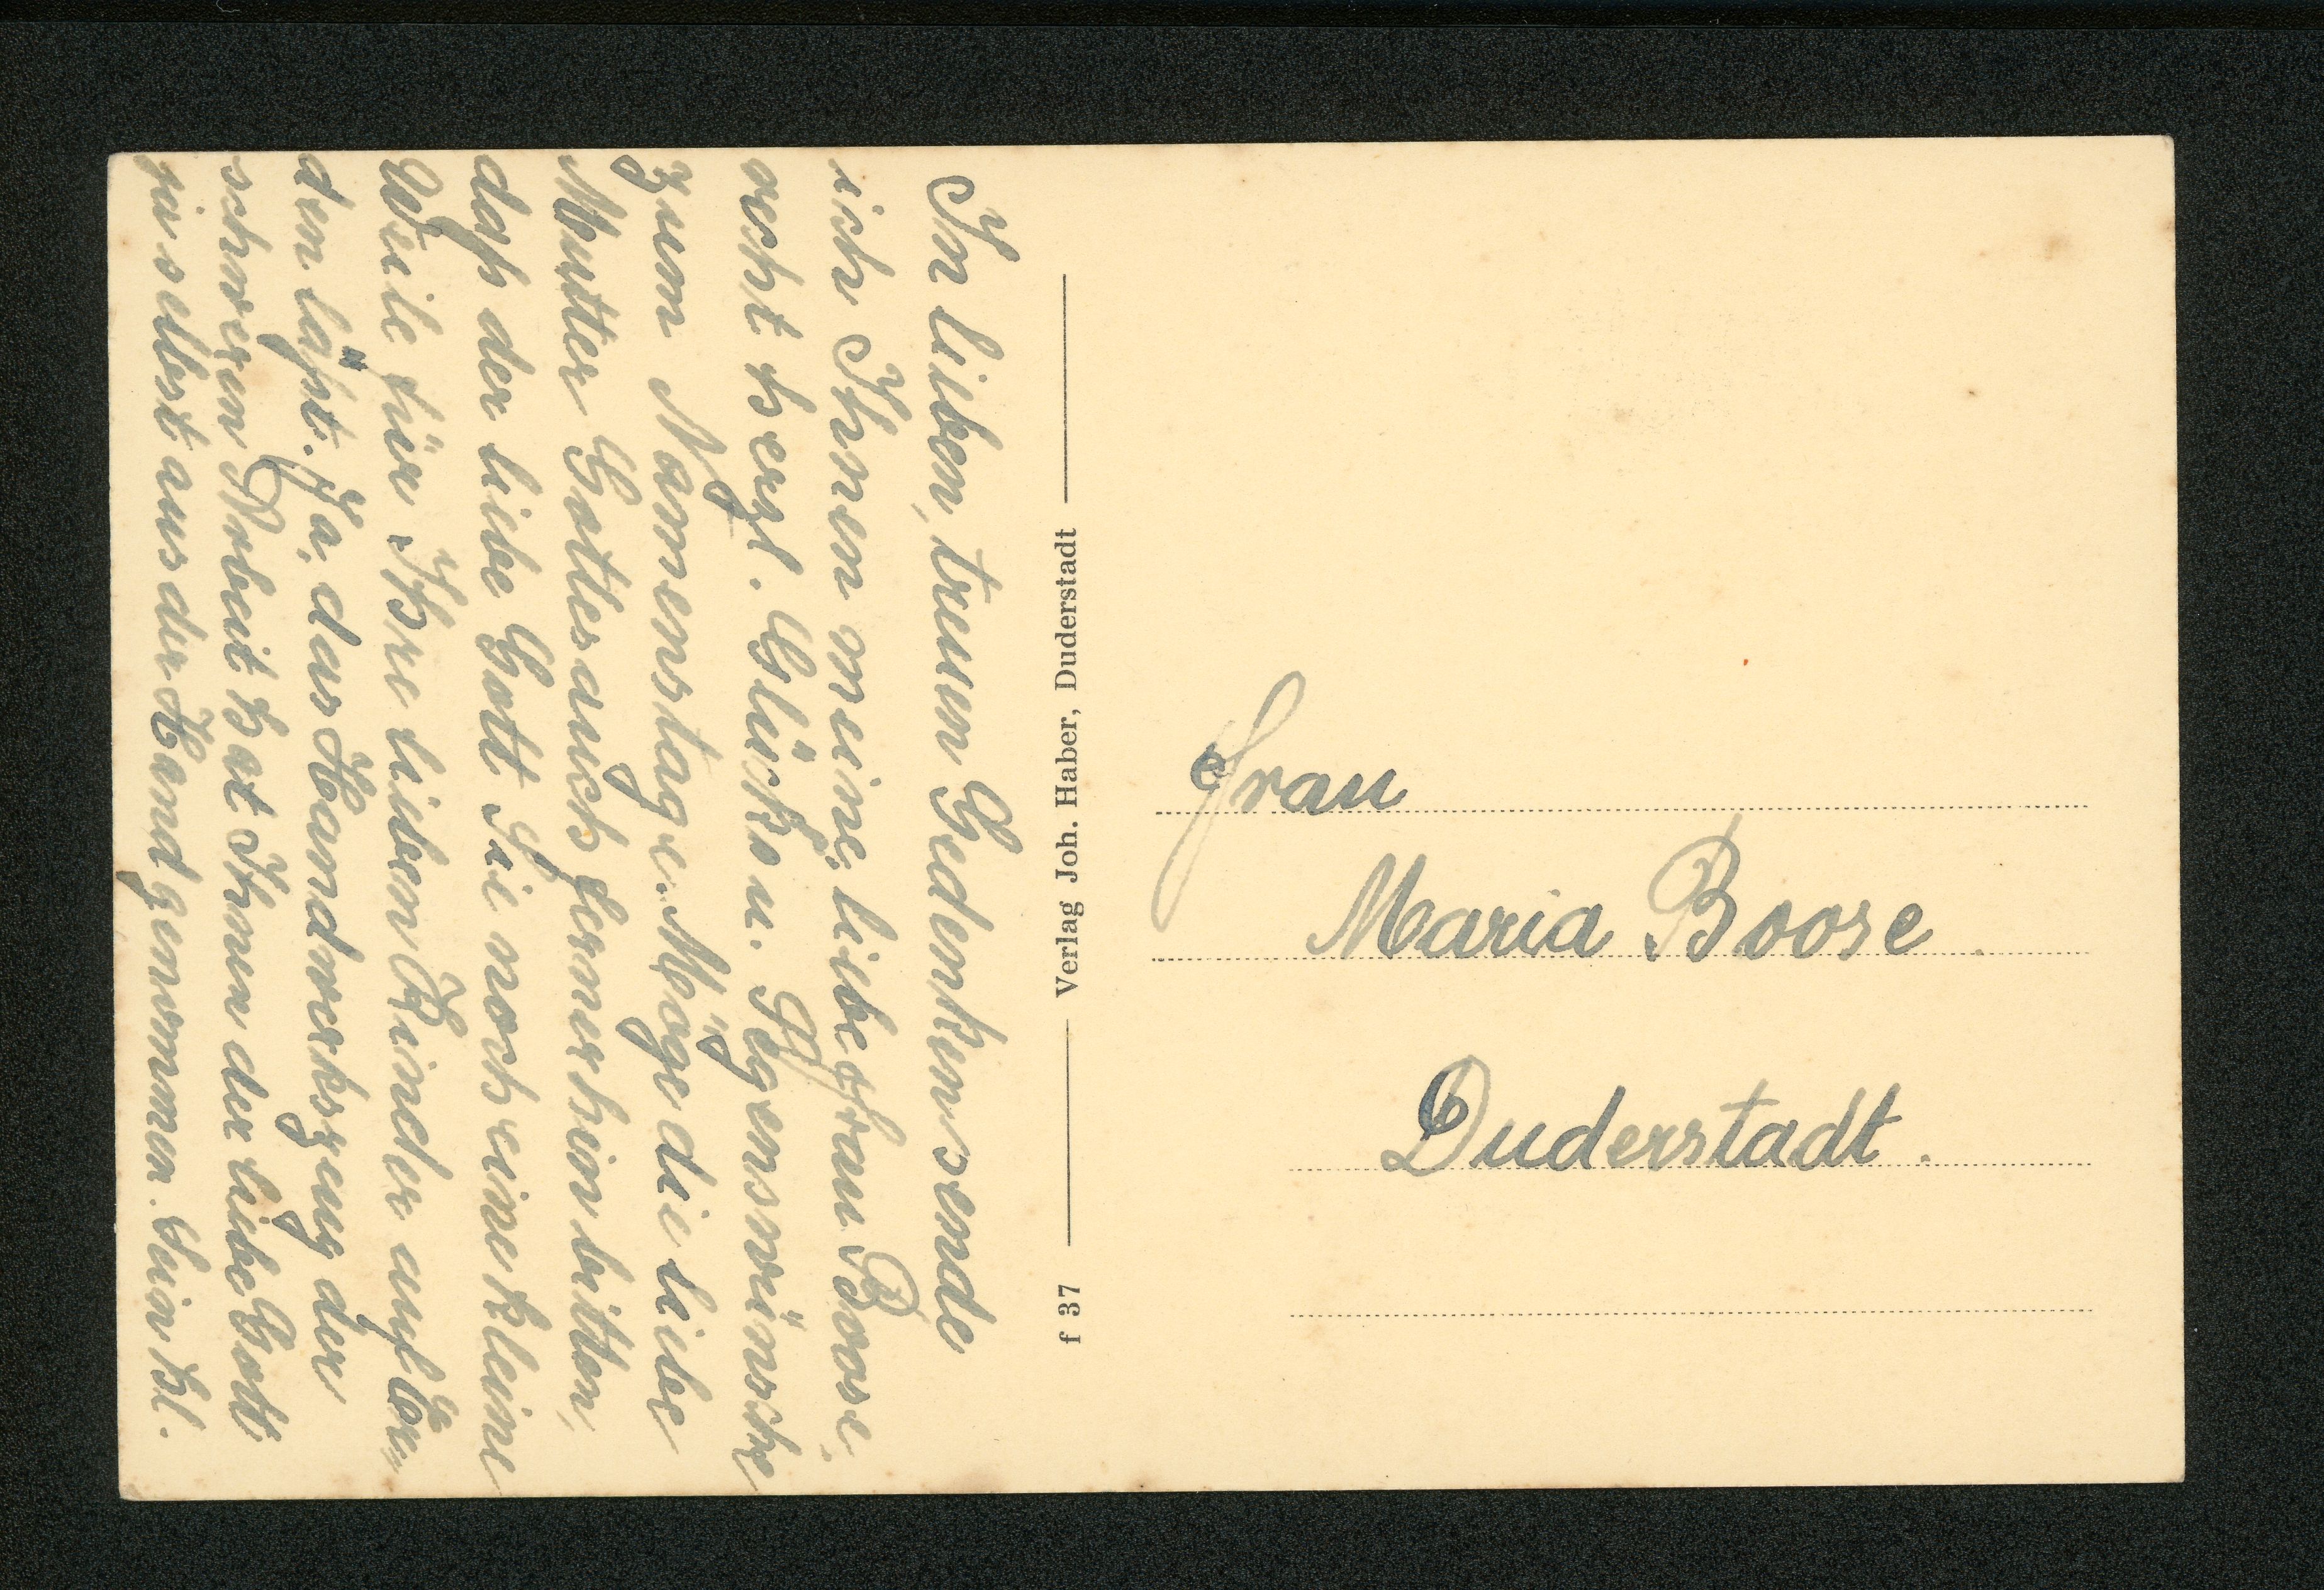 In lieben, treuen Gedenken sende
ich Ihnen meine liebe Frau Boose.
recht herzl. Glück- u. Segenswünsche
zum Namenstage. Möge die liebe
Mutter Gottes auch fernerhin bitten,
daß der liebe Gott Sie noch eine kleine
Weile für Ihre lieben Kinder auf Er-
den läßt. Ja, das Handwerkszeug der
schweren Arbeit hat Ihnen der liebe Gott
ja selbst aus der Hand genommen. Ein kl.
Verlag Joh. Haber, Duderstadt
f 37
Frau
Maria Boose
Duderstadt.